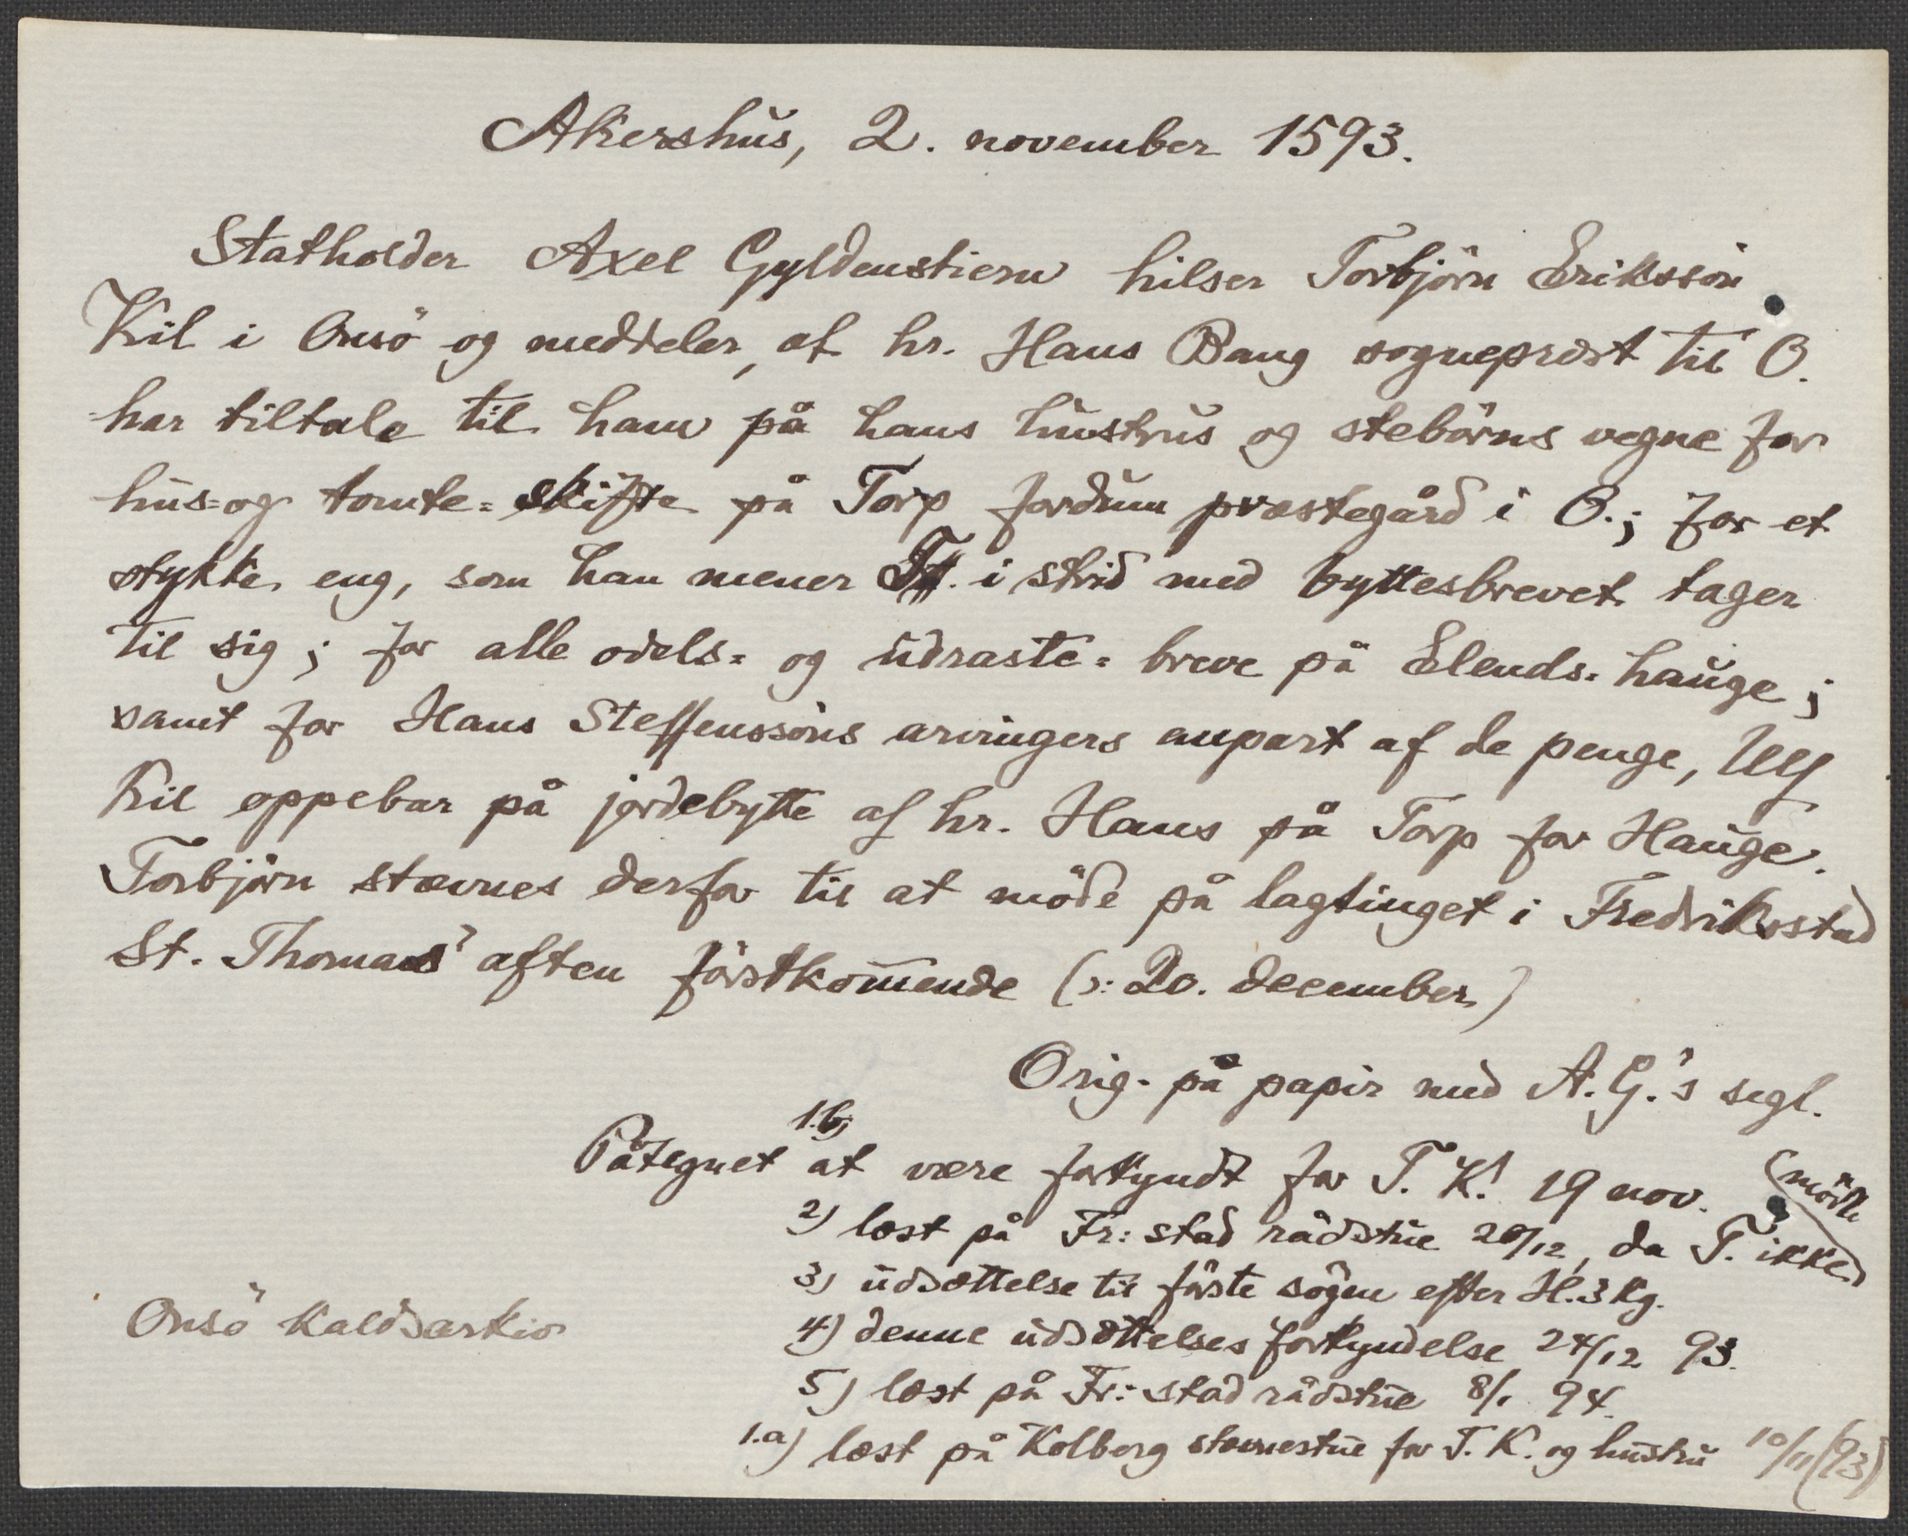 Akershus, 2. november 1593.
Statholder Axel Gyldenstiern hilser Torbjörn Eriksson
Kil i Onsö og meddeler, at hr. Hans Bang sogneprest til O.
har tiltale til ham på hans hustrus og stebörns vegne for
hus= og tomte= skifte på Torp fordum præstegård i O.; for et
stykke eng, som han mener T. i strid med byttesbrevet tager
til sig; for alle odels= og udraste= breve på Elends= hauge;
samt for Hans Steffenssöns arvingers anpart af de penge, Ulf
Kil oppebar på jordebytte af hr. Hans på Torp for Hauge.
Torbjörn stævnes derfor til at möde på lagtinget i Fredrikstad
St. Thomas' aften förstkom̄ende (ɔ: 20. december)
Orig. på papir med A. G.'s segl.
Påtegnet 1.b) at være forkyndt for T. K. 19 nov.
2) læst på Fr: stad rådstue 20/12, da T. ikke (mödte)
3) udsættelse til förste sögne efter H. 3 kg.
4) denne udsættelses forkyndelse 24/12 93.
5) læst på Fr: stad rådstue 8/1 94.
1.a) læst på Kolberg stævnestue for T. K. og hustru 10/11 (93)
Onsö kaldsarkiv